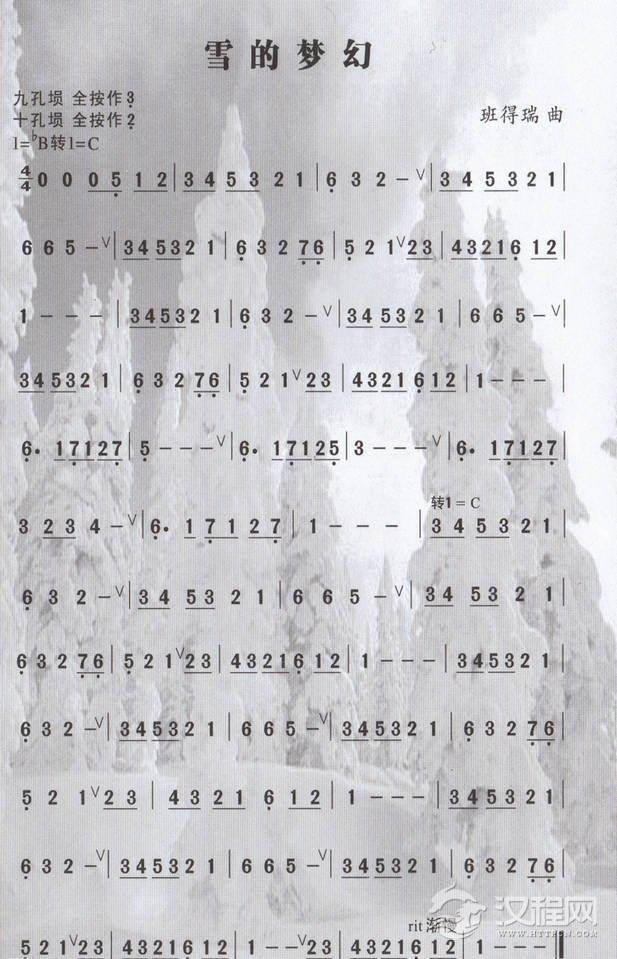 雪的梦幻
九孔埙 全按作3̣
十孔埙 全按作2̣
班得瑞 曲
1=♭B转1=C
4/4 0 0 0 5̣ 1 2 | 3 4 5 3 2 1 | 6̣ 3 2 – ∨ | 3 4 5 3 2 1 |
6 6 5 – ∨ | 3 4 5 3 2 1 | 6̣ 3 2 7̣ 6̣ | 5̣ 2 1 ∨ 2 3 | 4 3 2 1 6̣ 1 2 |
1 – – – | 3 4 5 3 2 1 | 6̣ 3 2 – ∨ | 3 4 5 3 2 1 | 6 6 5 – ∨ |
3 4 5 3 2 1 | 6̣ 3 2 7̣ 6̣ | 5̣ 2 1 ∨ 2 3 | 4 3 2 1 6̣ 1 2 | 1 – – – |
6̣ · 1 7̣ 1 2 7̣ | 5̣ – – – ∨ | 6̣ · 1 7̣ 1 2 5̣ | 3 – – – ∨ | 6̣ · 1 7̣ 1 2 7̣ |
3 2 3 4 – ∨ | 6̣ · 1 7̣ 1 2 7̣ | 1 – – – | 转1=C 3 4 5 3 2 1 |
6̣ 3 2 – ∨ | 3 4 5 3 2 1 | 6 6 5 – ∨ | 3 4 5 3 2 1 |
6̣ 3 2 7̣ 6̣ | 5̣ 2 1 ∨ 2 3 | 4 3 2 1 6̣ 1 2 | 1 – – – | 3 4 5 3 2 1 |
6̣ 3 2 – ∨ | 3 4 5 3 2 1 | 6 6 5 – ∨ | 3 4 5 3 2 1 | 6̣ 3 2 7̣ 6̣ |
5̣ 2 1 ∨ 2 3 | 4 3 2 1 6̣ 1 2 | 1 – – – | 3 4 5 3 2 1 |
6̣ 3 2 – ∨ | 3 4 5 3 2 1 | 6 6 5 – ∨ | 3 4 5 3 2 1 | 6̣ 3 2 7̣ 6̣ |
rit 渐慢
5̣ 2 1 ∨ 2 3 | 4 3 2 1 6̣ 1 2 ∨ | 5̣ 2 1 2 3 | 4 3 2 1 6̣ 1 2 | 1 – – – ‖
汉程网
HTTPCN.COM